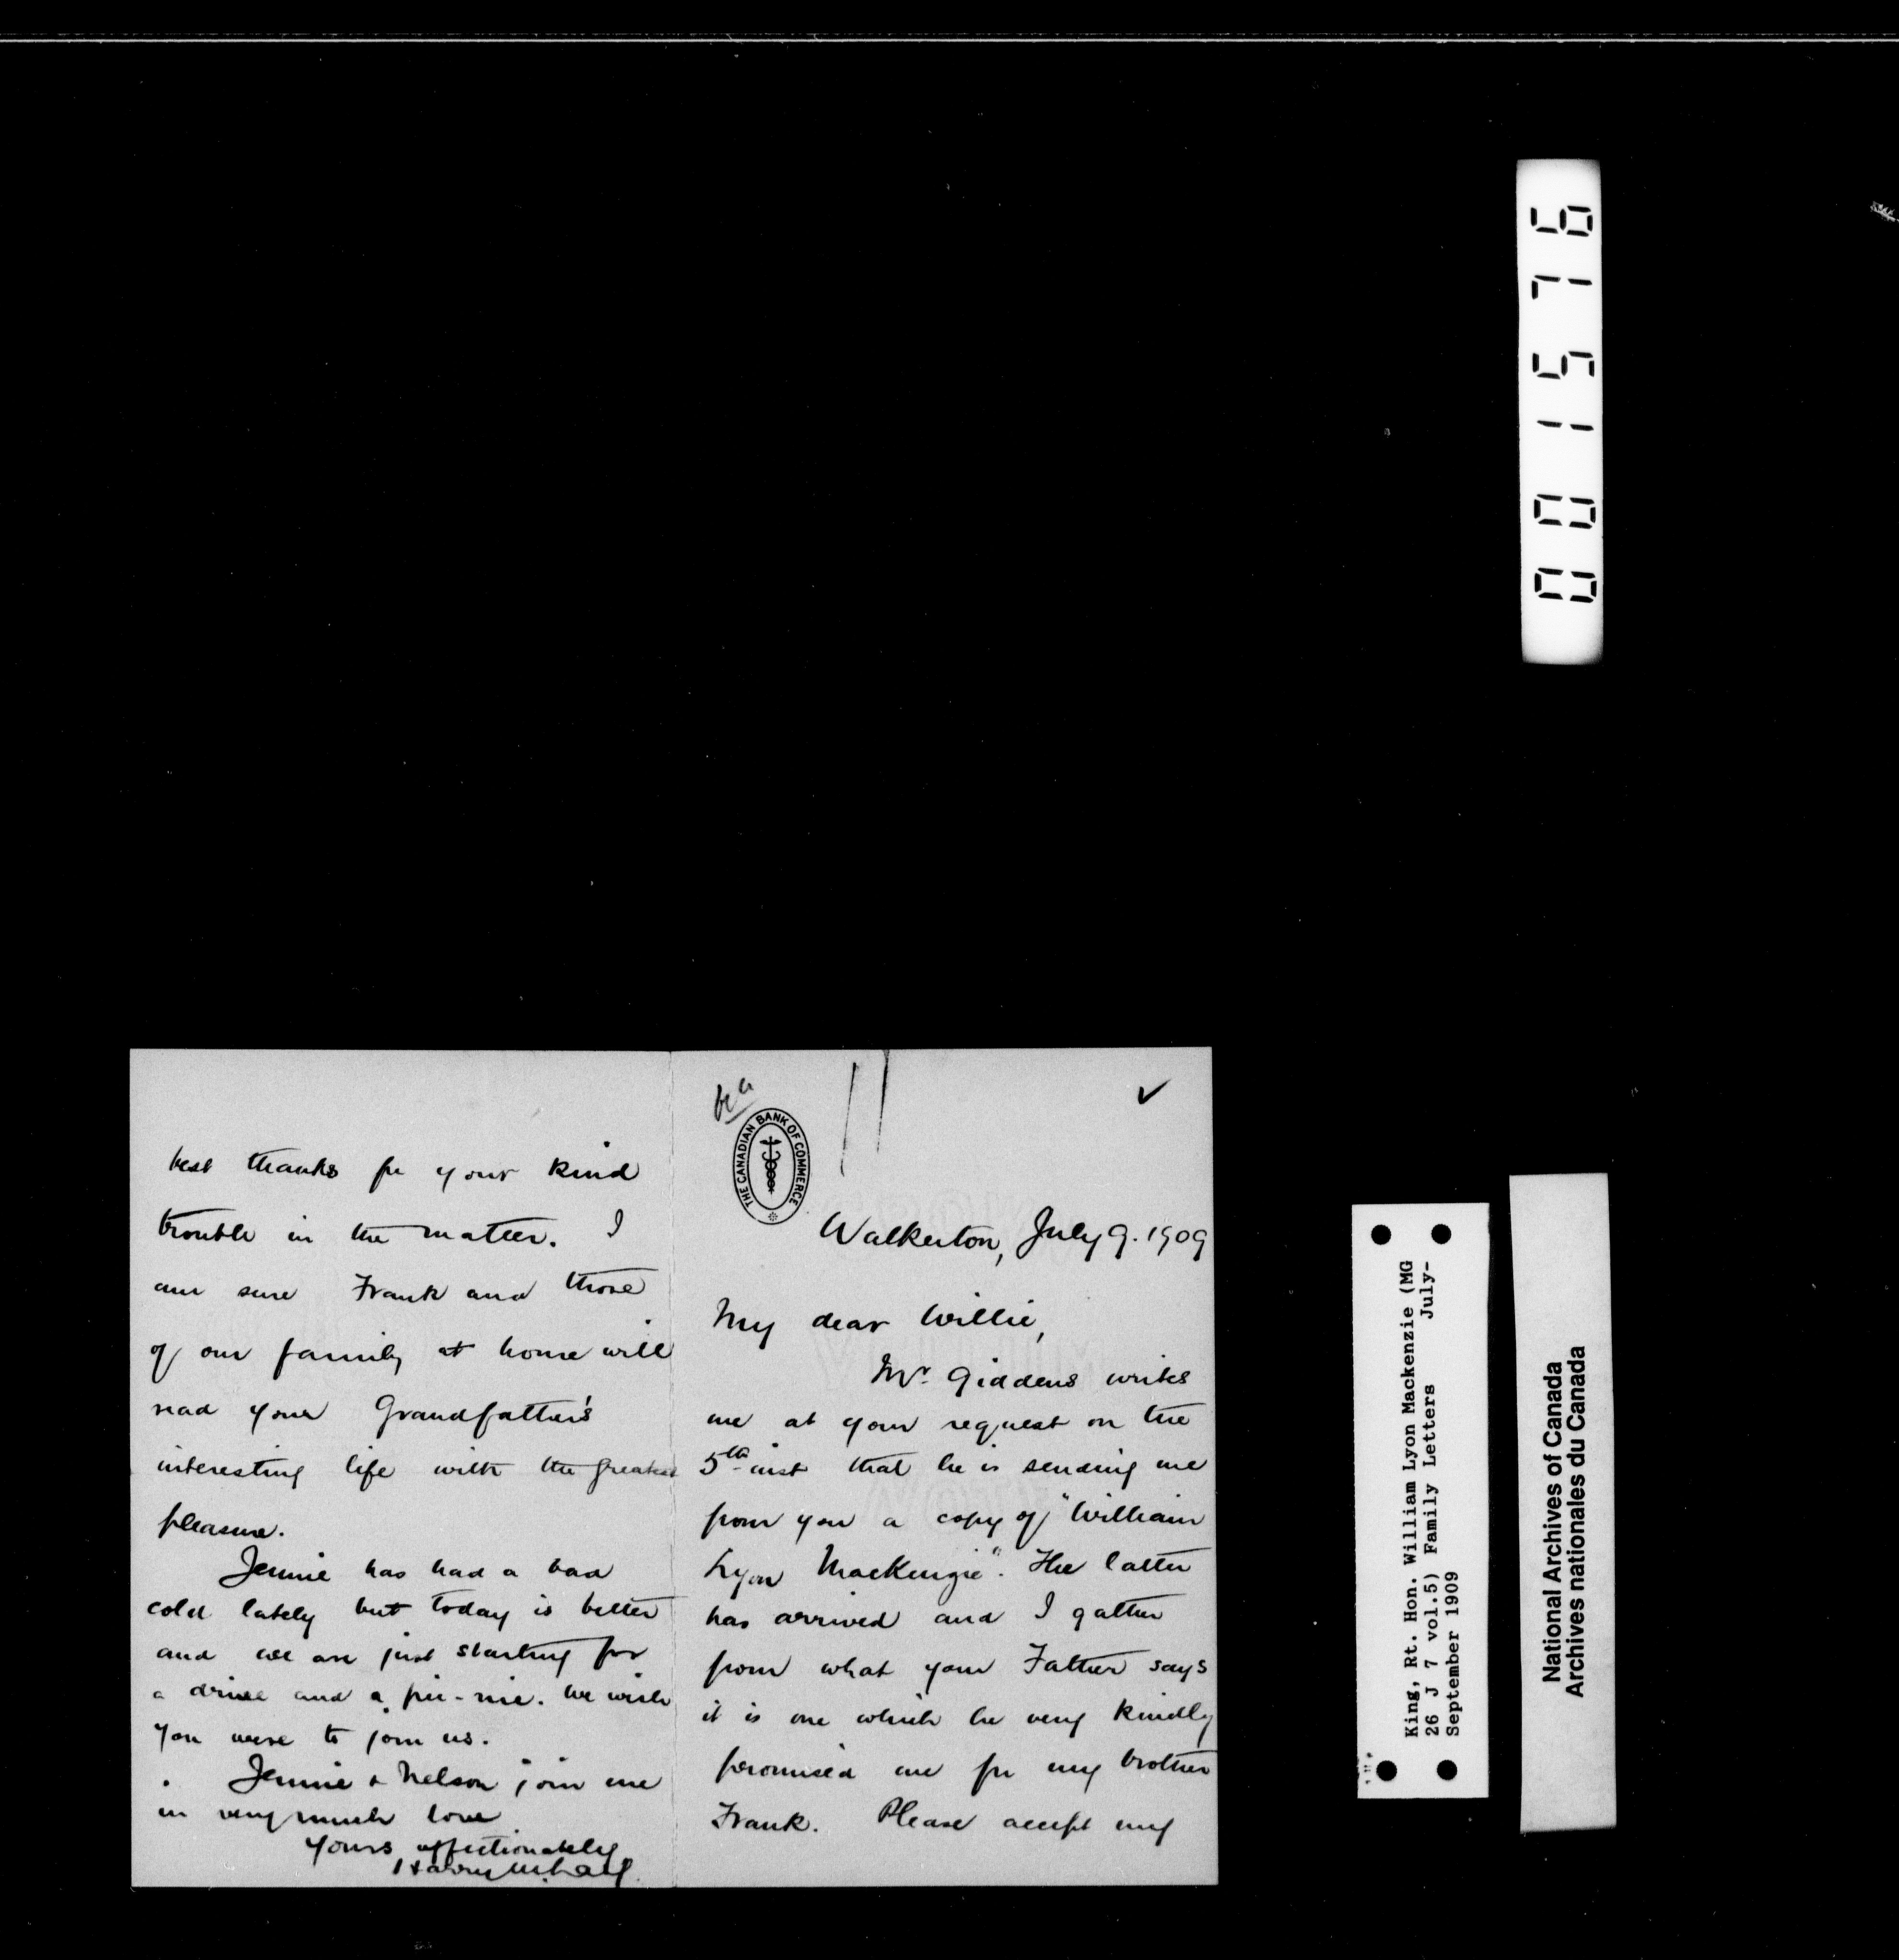 THE CANADIAN BANK OF COMMERCE
Walkerton, July 9. 1909
My dear Willie,
Mr. Giddens writes
me at your request on the
5th inst that he is sending me
from you a copy of "William
Lyon MacKenzie". The latter
has arrived and I gather
from what your Father says
it is one which he very kindly
promised me for my brother
Frank. Please accept my
best thanks for your kind
trouble in the matter. I
am sure Frank and those
of our family at home will
read your Grandfather's
interesting life with the greatest
pleasure.
Jennie has had a bad
cold lately but today is better
and we are just starting for
a drive and a pic-nic. We wish
you were to join us.
Jennie & Nelson join me
in very much love
Yours affectionately
Harry M. Lay.
001576
King, Rt. Hon. William Lyon Mackenzie (MG
26 J 7 vol.5) Family Letters July-
September 1909
National Archives of Canada
Archives nationales du Canada